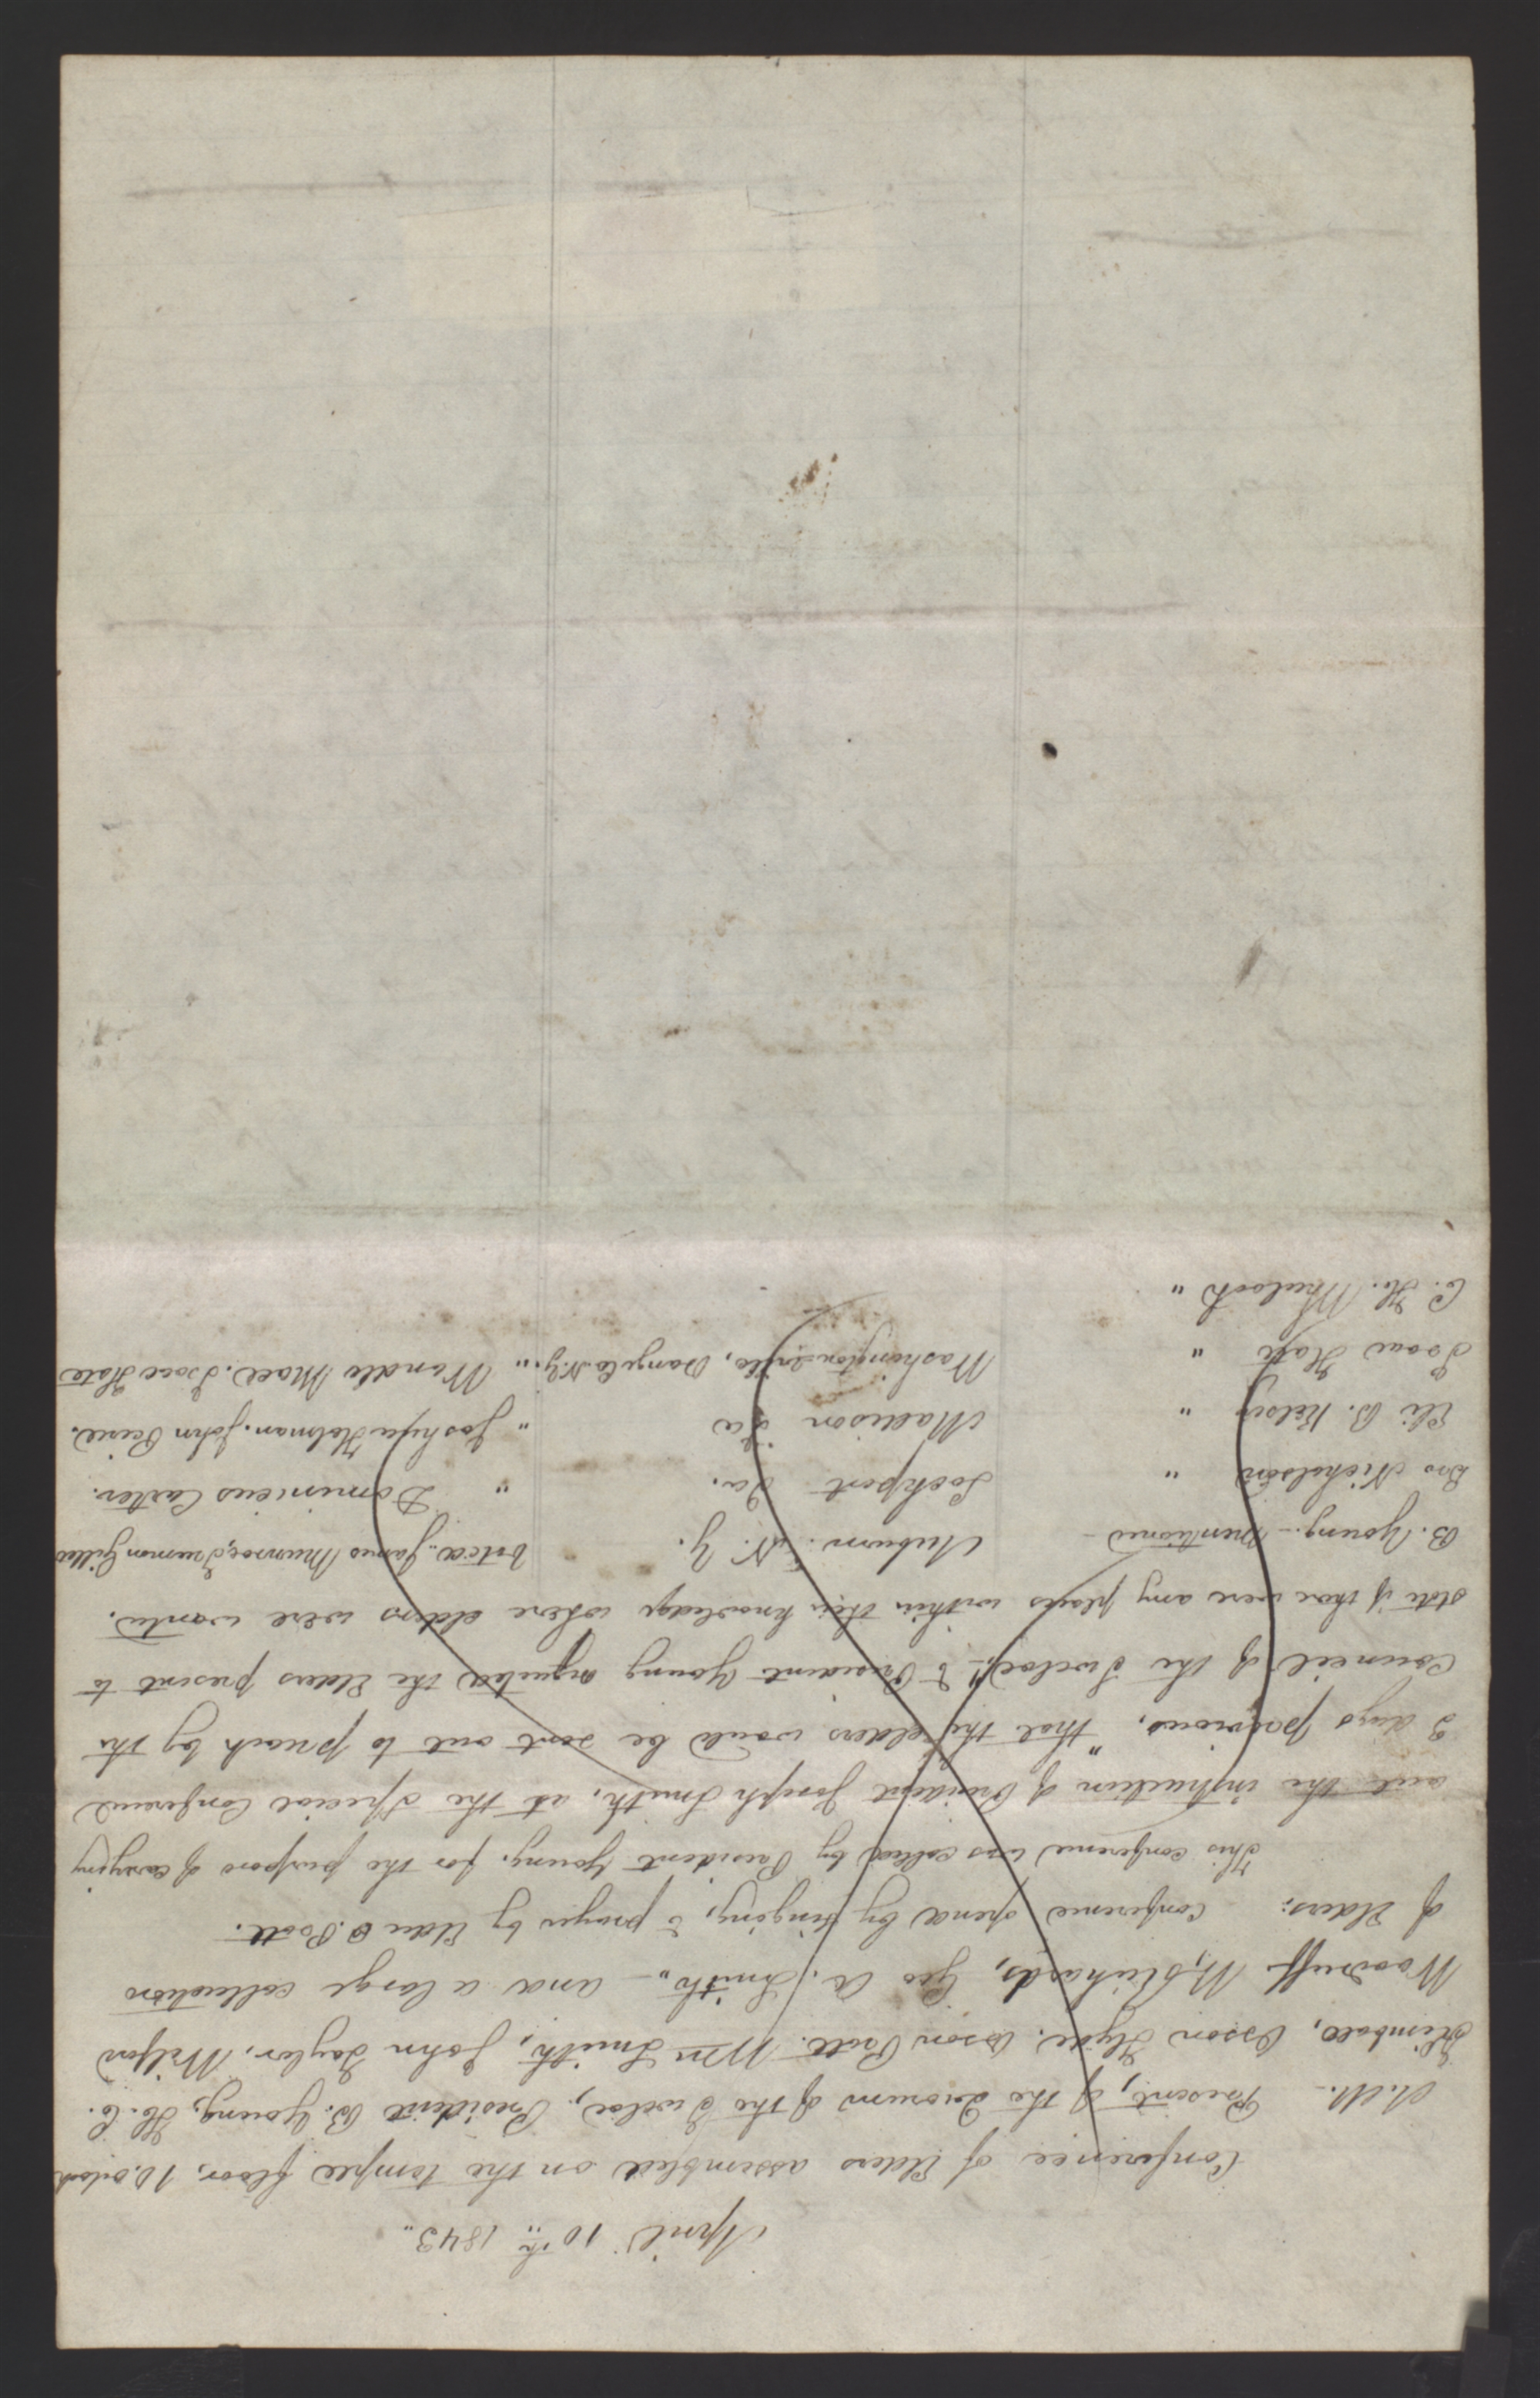 April 10th 1843.
Conference of Elders assembled on the temple floor, 10. oclock
A.M.- Present, of the Quorum of the Twelve, President B. Young, H. C.
Kimball, Orson Hyde, Orson Pratt. Wm Smith, John Taylor, Wilford
Woodruff W, Richards, Geo A. Smith - and a large collection
of Elders: Conference opend by singing, & prayer by Elder O. Pratt.
This conference was called by President Young, for the purpose of carrying
out the instruction of President Joseph Smith, at the special Conference
3 days previous, "that the elders would be sent out to preach by the
council of the Twelve," & President Young requested the Elders present to
state if there were any places within their knowledge where elders were wanted.
B. Young.- mentioned - Auburn. N. Y. voted. James Munroe, Truman Gillett
Nicholson " Lockport " Dominicus Carter.
Eli B. Kelsey " Madison " Joshua Holman. John Peirce.
Isaac Hatt " N.Y. " Wandle Mace. Isaac
C. H. Wheelock "